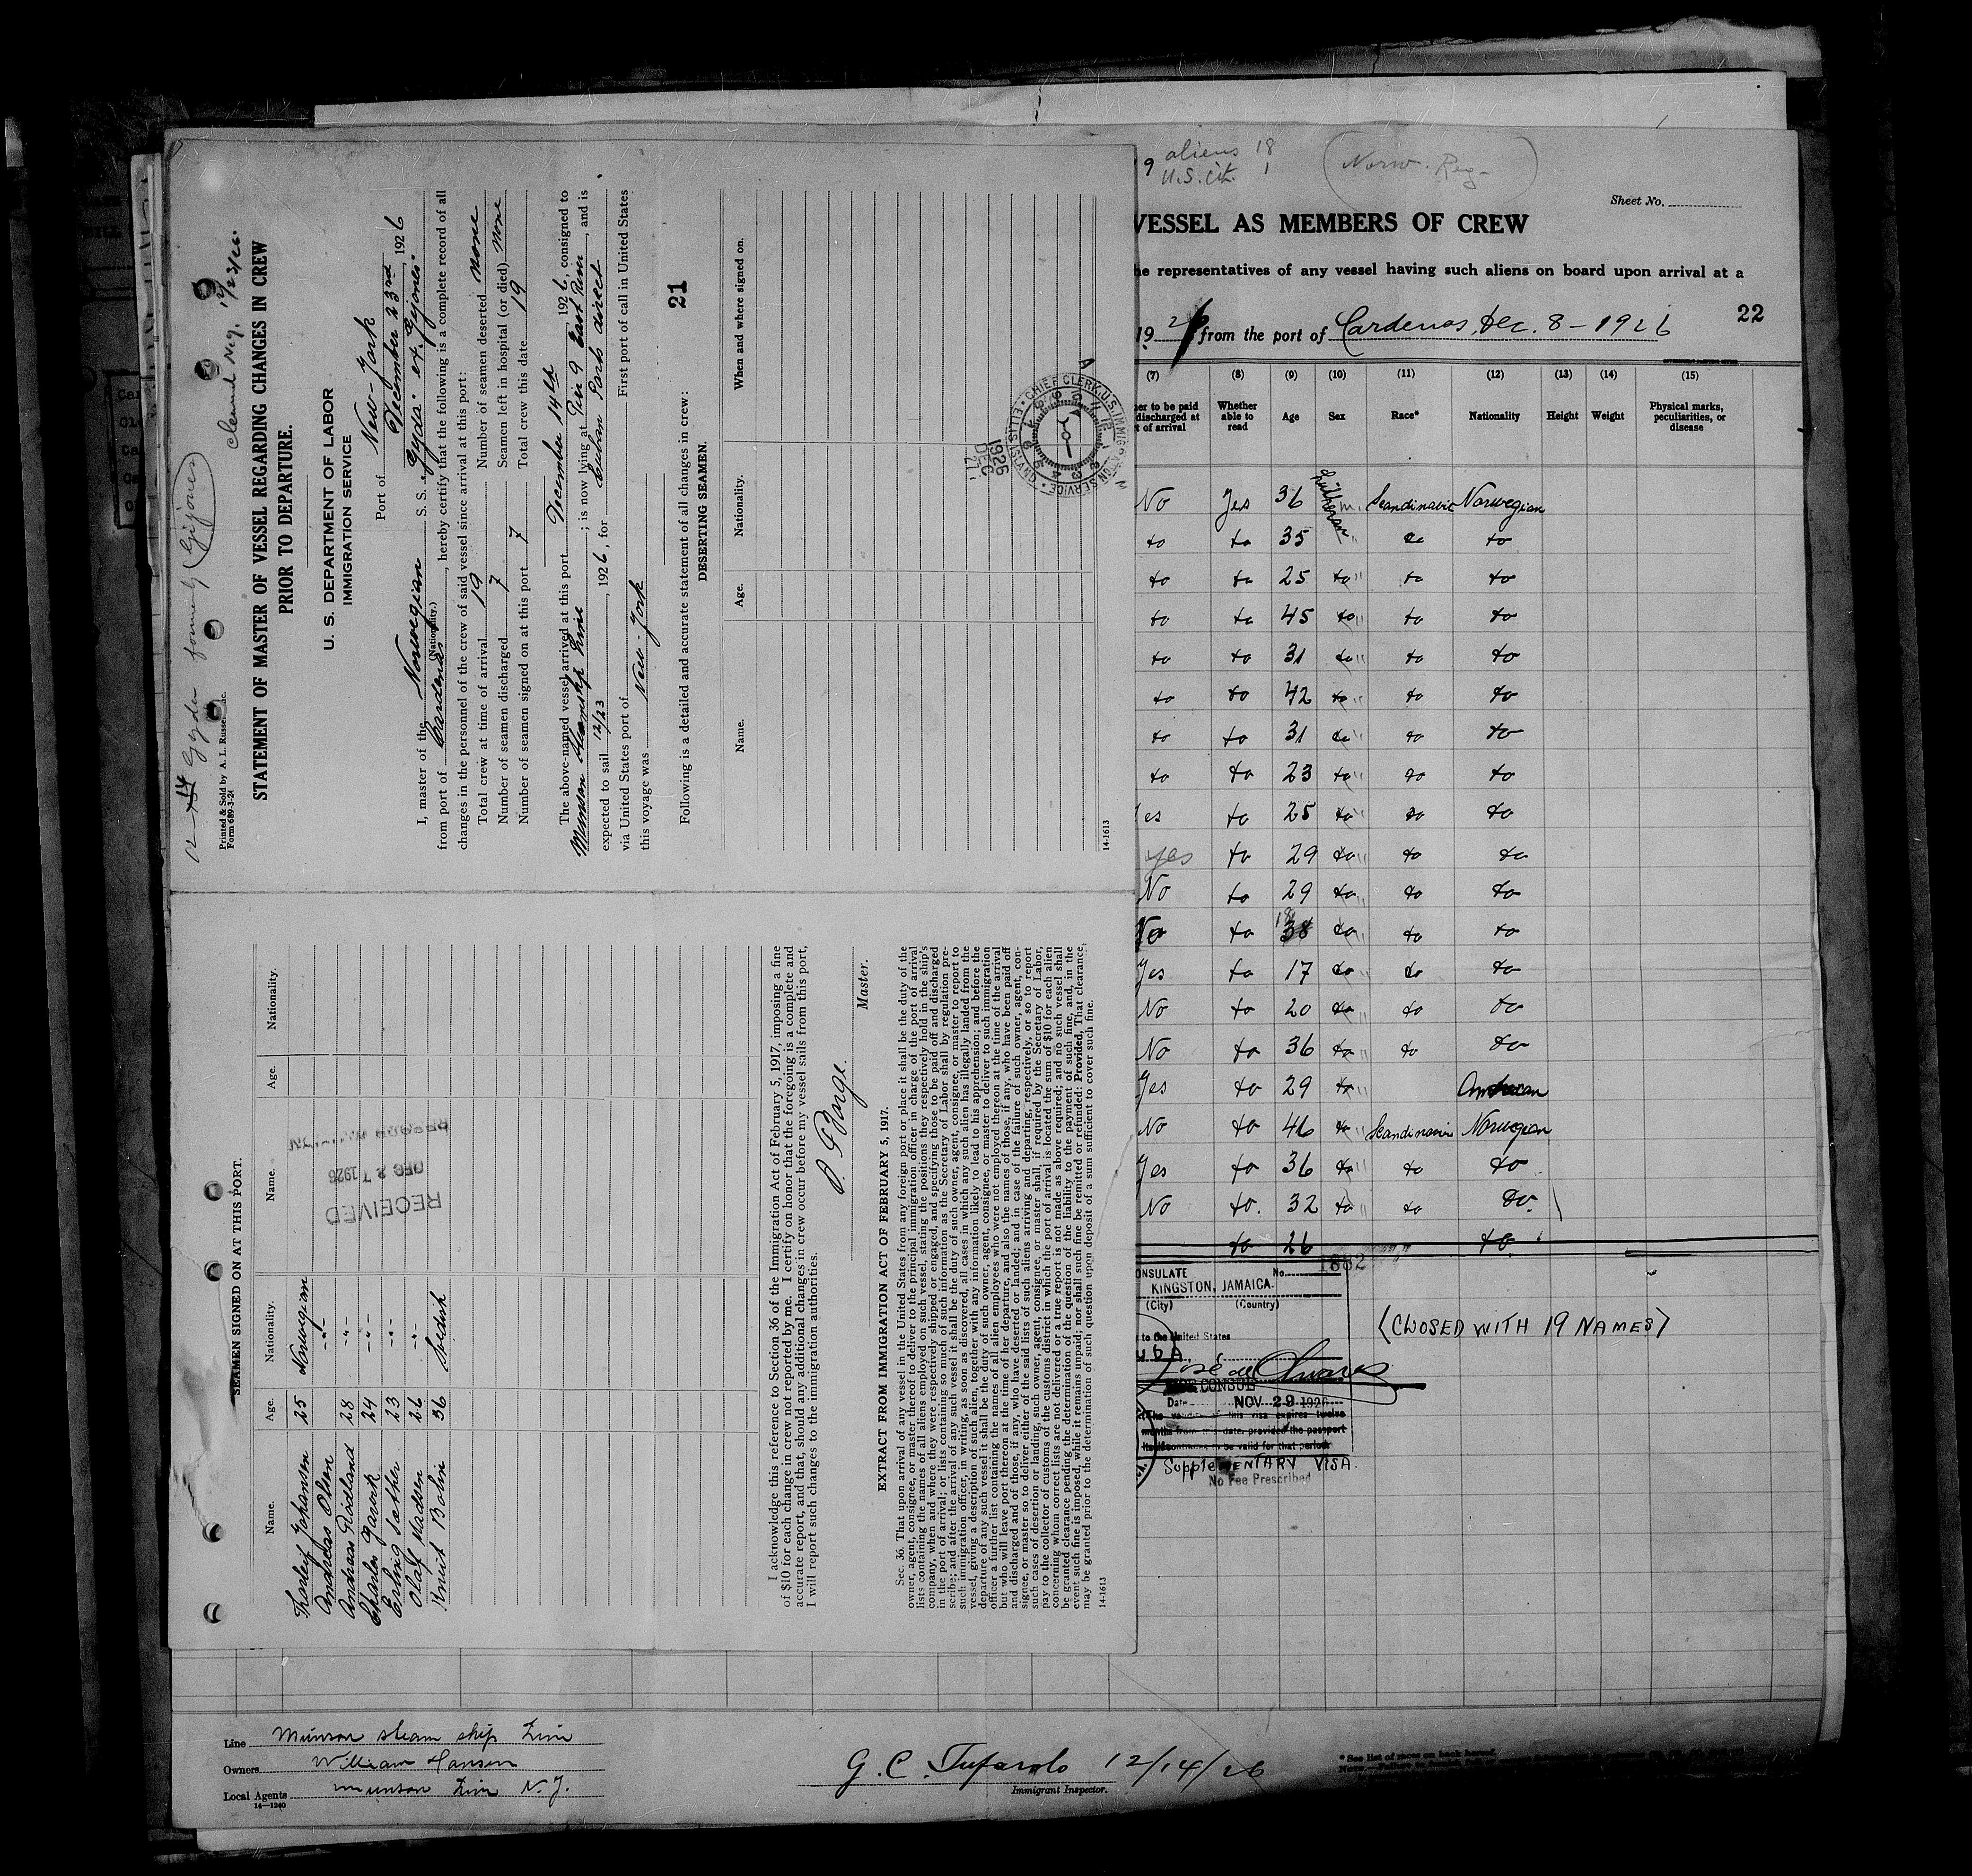 12-14 Gyda formerly (Gijones)
cleared N.Y. 12/23/26.
Printed & Sold by A. L. Russell, Inc.
Form 689-3-24
STATEMENT OF MASTER OF VESSEL REGARDING CHANGES IN CREW
PRIOR TO DEPARTURE.
U. S. DEPARTMENT OF LABOR
IMMIGRATION SERVICE
Port of New-York
December 23rd, 1926
I, master of the Norwegian S. S. "Gyda" ex. "Gijones"
(Nationality.)
from port of Cardenas, hereby certify that the following is a complete record of all
changes in the personnel of the crew of said vessel since arrival at this port:
Total crew at time of arrival 19 Number of seamen deserted none
Number of seamen discharged 7 Seamen left in hospital (or died) none
Number of seamen signed on at this port 7 Total crew this date 19
The above-named vessel arrived at this port December 14th, 1926, consigned to
Munson Steamship Line; is now lying at Pier 9 East River, and is
expected to sail 12/23, 1926, for Cuban Ports direct
via United States port of First port of call in United States
this voyage was New-York
21
Following is a detailed and accurate statement of all changes in crew:
DESERTING SEAMEN.
Name. Age. Nationality. When and where signed on.
CHIEF CLERK U.S. IMMIGRATION SERVICE
ELLIS ISLAND
1926
DEC
27
14-1613
SEAMEN SIGNED ON AT THIS PORT.
Name. Age. Nationality. Name. Age. Nationality.
Thorleif Johansen 25 Norwegian
Andreas Olsen 28 -"-
Andreas Rodland 24 -"-
Charles Gavik 23 -"-
Erling Sather 26 -"-
Olaf Madsen
Knut Bolin 36 Swedish
RECEIVED
DEC 27 1926
RECORD DIVISION
I acknowledge this reference to Section 36 of the Immigration Act of February 5, 1917, imposing a fine
of $10 for each change in crew not reported by me. I certify on honor that the foregoing is a complete and
accurate report, and that, should any additional changes in crew occur before my vessel sails from this port,
I will report such changes to the immigration authorities.
Master.
EXTRACT FROM IMMIGRATION ACT OF FEBRUARY 5, 1917.
Sec. 36. That upon arrival of any vessel in the United States from any foreign port or place it shall be the duty of the
owner, agent, consignee, or master thereof to deliver to the principal immigration officer in charge of the port of arrival
lists containing the names of all aliens employed on such vessel, stating the positions they respectively hold in the ship's
company, when and where they were respectively shipped or engaged, and specifying those to be paid off and discharged
in the port of arrival; or lists containing so much of such information as the Secretary of Labor shall by regulation pre-
scribe; and after the arrival of any such vessel it shall be the duty of such owner, agent, consignee, or master to report to
such immigration officer, in writing, as soon as discovered, all cases in which any such alien has illegally landed from the
vessel, giving a description of such alien, together with any information likely to lead to his apprehension; and before the
departure of any such vessel it shall be the duty of such owner, agent, consignee, or master to deliver to such immigration
officer a further list containing the names of all alien employees who were not employed thereon at the time of the arrival
but who will leave port thereon at the time of her departure, and also the names of those, if any, who have been paid off
and discharged and of those, if any, who have deserted or landed; and in case of the failure of such owner, agent, con-
signee, or master so to deliver either of the said lists of such aliens arriving and departing, respectively, or so to report
such cases of desertion or landing, such owner, agent, consignee, or master shall, if required by the Secretary of Labor,
pay to the collector of customs of the customs district in which the port of arrival is located the sum of $10 for each alien
concerning whom correct lists are not delivered or a true report is not made as above required; and no such vessel shall
be granted clearance pending the determination of the question of the liability to the payment of such fine, and, in the
event such fine is imposed, while it remains unpaid; nor shall such fine be remitted or refunded: Provided, That clearance
may be granted prior to the determination of such question upon deposit of a sum sufficient to cover such fine.
14-1613
9 aliens 18
U.S. cit. 1
(Norw. Reg.)
Sheet No.
VESSEL AS MEMBERS OF CREW
he representatives of any vessel having such aliens on board upon arrival at a
22
1926 from the port of Cardenas, Dec. 8 - 1926
(7) (8) (9) (10) (11) (12) (13) (14) (15)
er to be paid discharged at t of arrival Whether able to read Age Sex Race* Nationality Height Weight Physical marks, peculiarities, or disease
No Yes 36 m. Scandinavic Norwegian
Lutheran
to to 35 " to to
to to 25 to " to to
to to 45 to " to to
to to 31 to " to to
to to 42 to " to to
to to 31 to " to to
to to 23 to " to to
es to 25 to " to to
yes to 29 to " to to
No to 29 to " to to
No to 38 18 to to to
Yes to 17 to to to
No to 20 to to to
No to 36 to " to to
Yes to 29 to " American
No to 46 to " Scandinavic Norwegian
Yes to 36 to " to to
No to. 32 to " to to.
to 26 to
ONSULATE No. 1862
KINGSTON, JAMAICA.
(City) (Country)
to the United States
UBA
José de Olivares
VICE CONSUL
Date NOV 29 1926
The validity of this visa expires twelve
months from this date, provided the passport
itself continues to be valid for that period
SUPPLEMENTARY VISA.
No Fee Prescribed
(CLOSED WITH 19 NAMES)
Line Munson steam ship Line
Owners William Hansen
Local Agents Munson Line N.Y.
14-1240
G. C. Tufarolo 12/14/26
Immigrant Inspector.
*See list of races on back hereof.